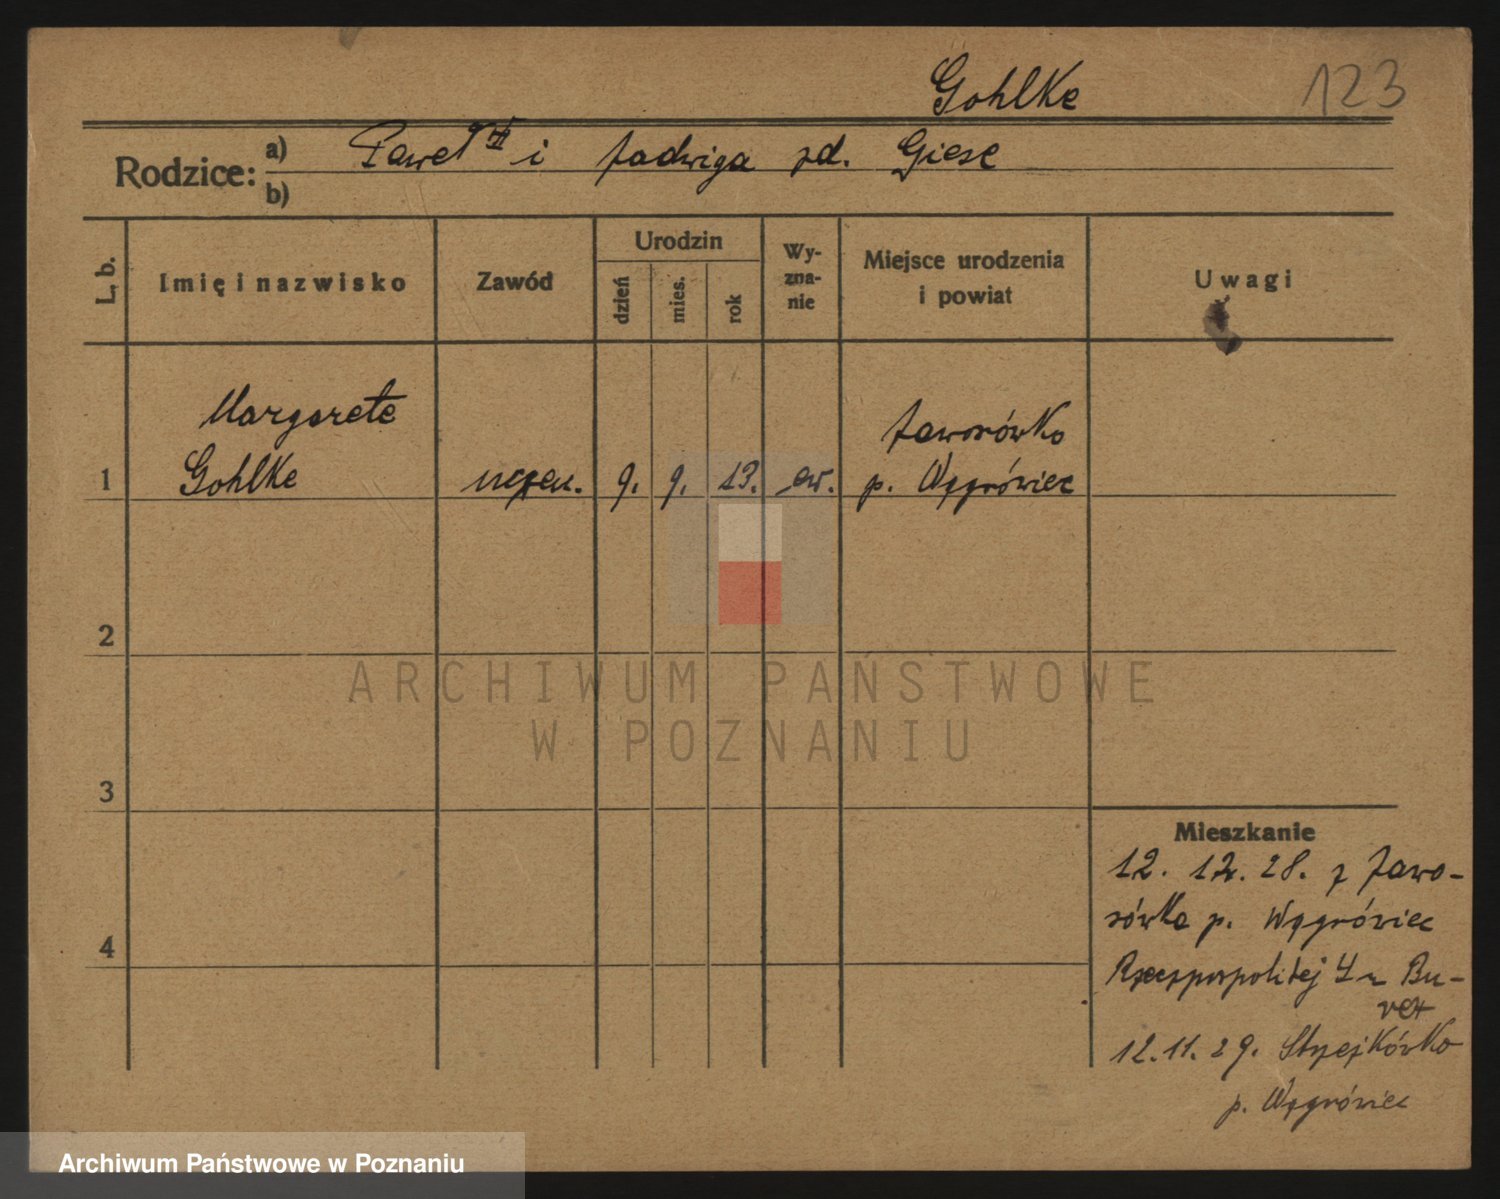 Gohlke
123
Rodzice:
a) Paweł i Jadwiga zd. Giese
b)
L. b.
Imię i nazwisko
Zawód
Urodzin
dzień
mies.
rok
Wy-
zna-
nie
Miejsce urodzenia
i powiat
Uwagi
Margarete
Jaworówko
1 Gohlke uczen. 9. 9. 13. ew. p. Wągrówiec
2
3
4
ARCHIWUM PAŃSTWOWE
W POZNANIU
Mieszkanie
12. 12. 28. z Jawo-
rówka p. Wągrówiec
Rzeczpospolitej 4
12.11.29. Stępjkówko
p. Wągrówiec
Archiwum Państwowe w Poznaniu